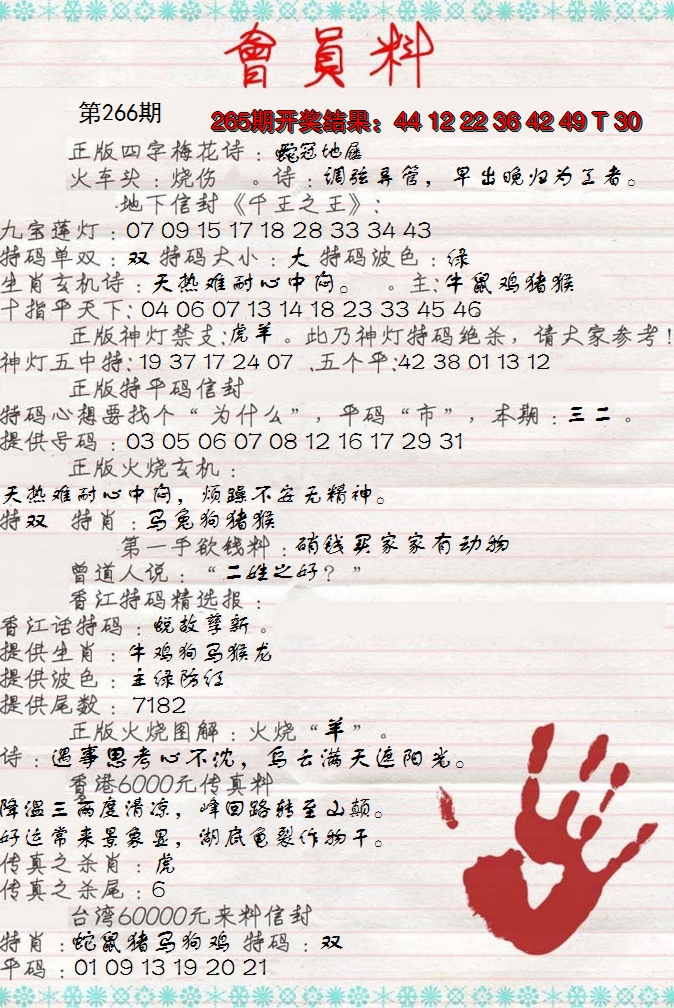 會員料
第266期
265期开奖结果：44 12 22 36 42 49 T 30
正版四字梅花诗：蛇冠地屋
火车头：烧伤 。诗：调弦弄管，早出晚归为王者。
地下信封《千王之王》：
九宝莲灯：07 09 15 17 18 28 33 34 43
特码单双：双 特码大小：大 特码波色：绿
生肖玄机诗：天热难耐心中闷。 。主：牛鼠鸡猪猴
十指平天下：04 06 07 13 14 18 23 33 45 46
正版神灯禁支：虎羊。此乃神灯特码绝杀，请大家参考！
神灯五中特：19 37 17 24 07 、五个平：42 38 01 13 12
正版特平码信封
特码心想要找个“为什么”，平码“市”，本期：三二。
提供号码：03 05 06 07 08 12 16 17 29 31
正版火烧玄机：
天热难耐心中闷，烦躁不安无精神。
特双 特肖：马兔狗猪猴
第一手欲钱料：硝钱买家家有动物
曾道人说：“二姓之好？”
香江特码精选报：
香江话特码：蜕故孳新。
提供生肖：牛鸡狗马猴龙
提供波色：主绿防红
提供尾数：7182
正版火烧图解：火烧“羊”。
诗：遇事思考心不沈，乌云满天遮阳光。
香港6000元传真料
降温三两度清凉，峰回路转至山颠。
好运常来景象显，湖底龟裂作物干。
传真之杀肖：虎
传真之杀尾：6
台湾60000元来料信封
特肖：蛇鼠猪马狗鸡 特码：双
平码：01 09 13 19 20 21